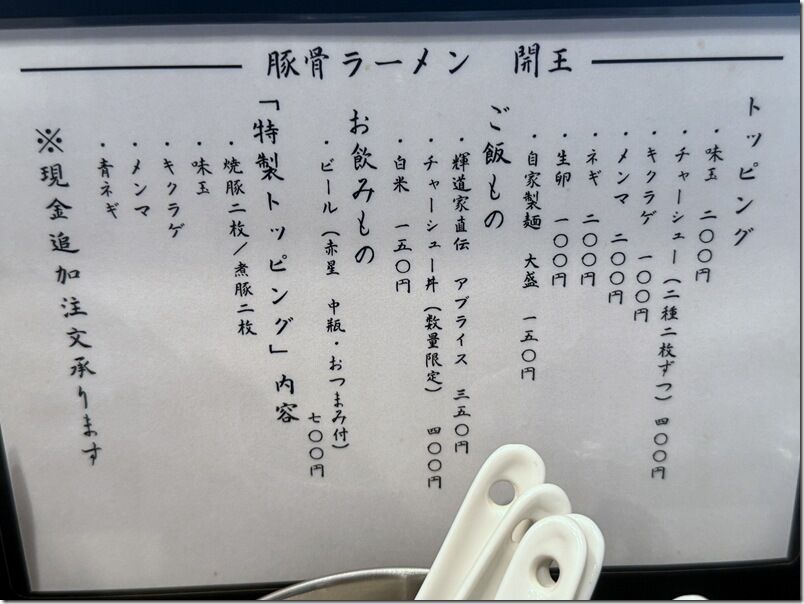 豚骨ラーメン 開王
トッピング
・味玉 二〇〇円
・チャーシュー(二種二枚ずつ) 四〇〇円
・キクラゲ 一〇〇円
・メンマ 二〇〇円
・ネギ 二〇〇円
・生卵 一〇〇円
・自家製麺 大盛 一五〇円
ご飯もの
・輝道家直伝 アブライス 三五〇円
・チャーシュー丼(数量限定) 四〇〇円
・白米 一五〇円
お飲みもの
・ビール(赤星 中瓶・おつまみ付)
七〇〇円
「特製トッピング」内容
・焼豚二枚/煮豚二枚
・味玉
・キクラゲ
・メンマ
・青ネギ
※現金追加注文承ります